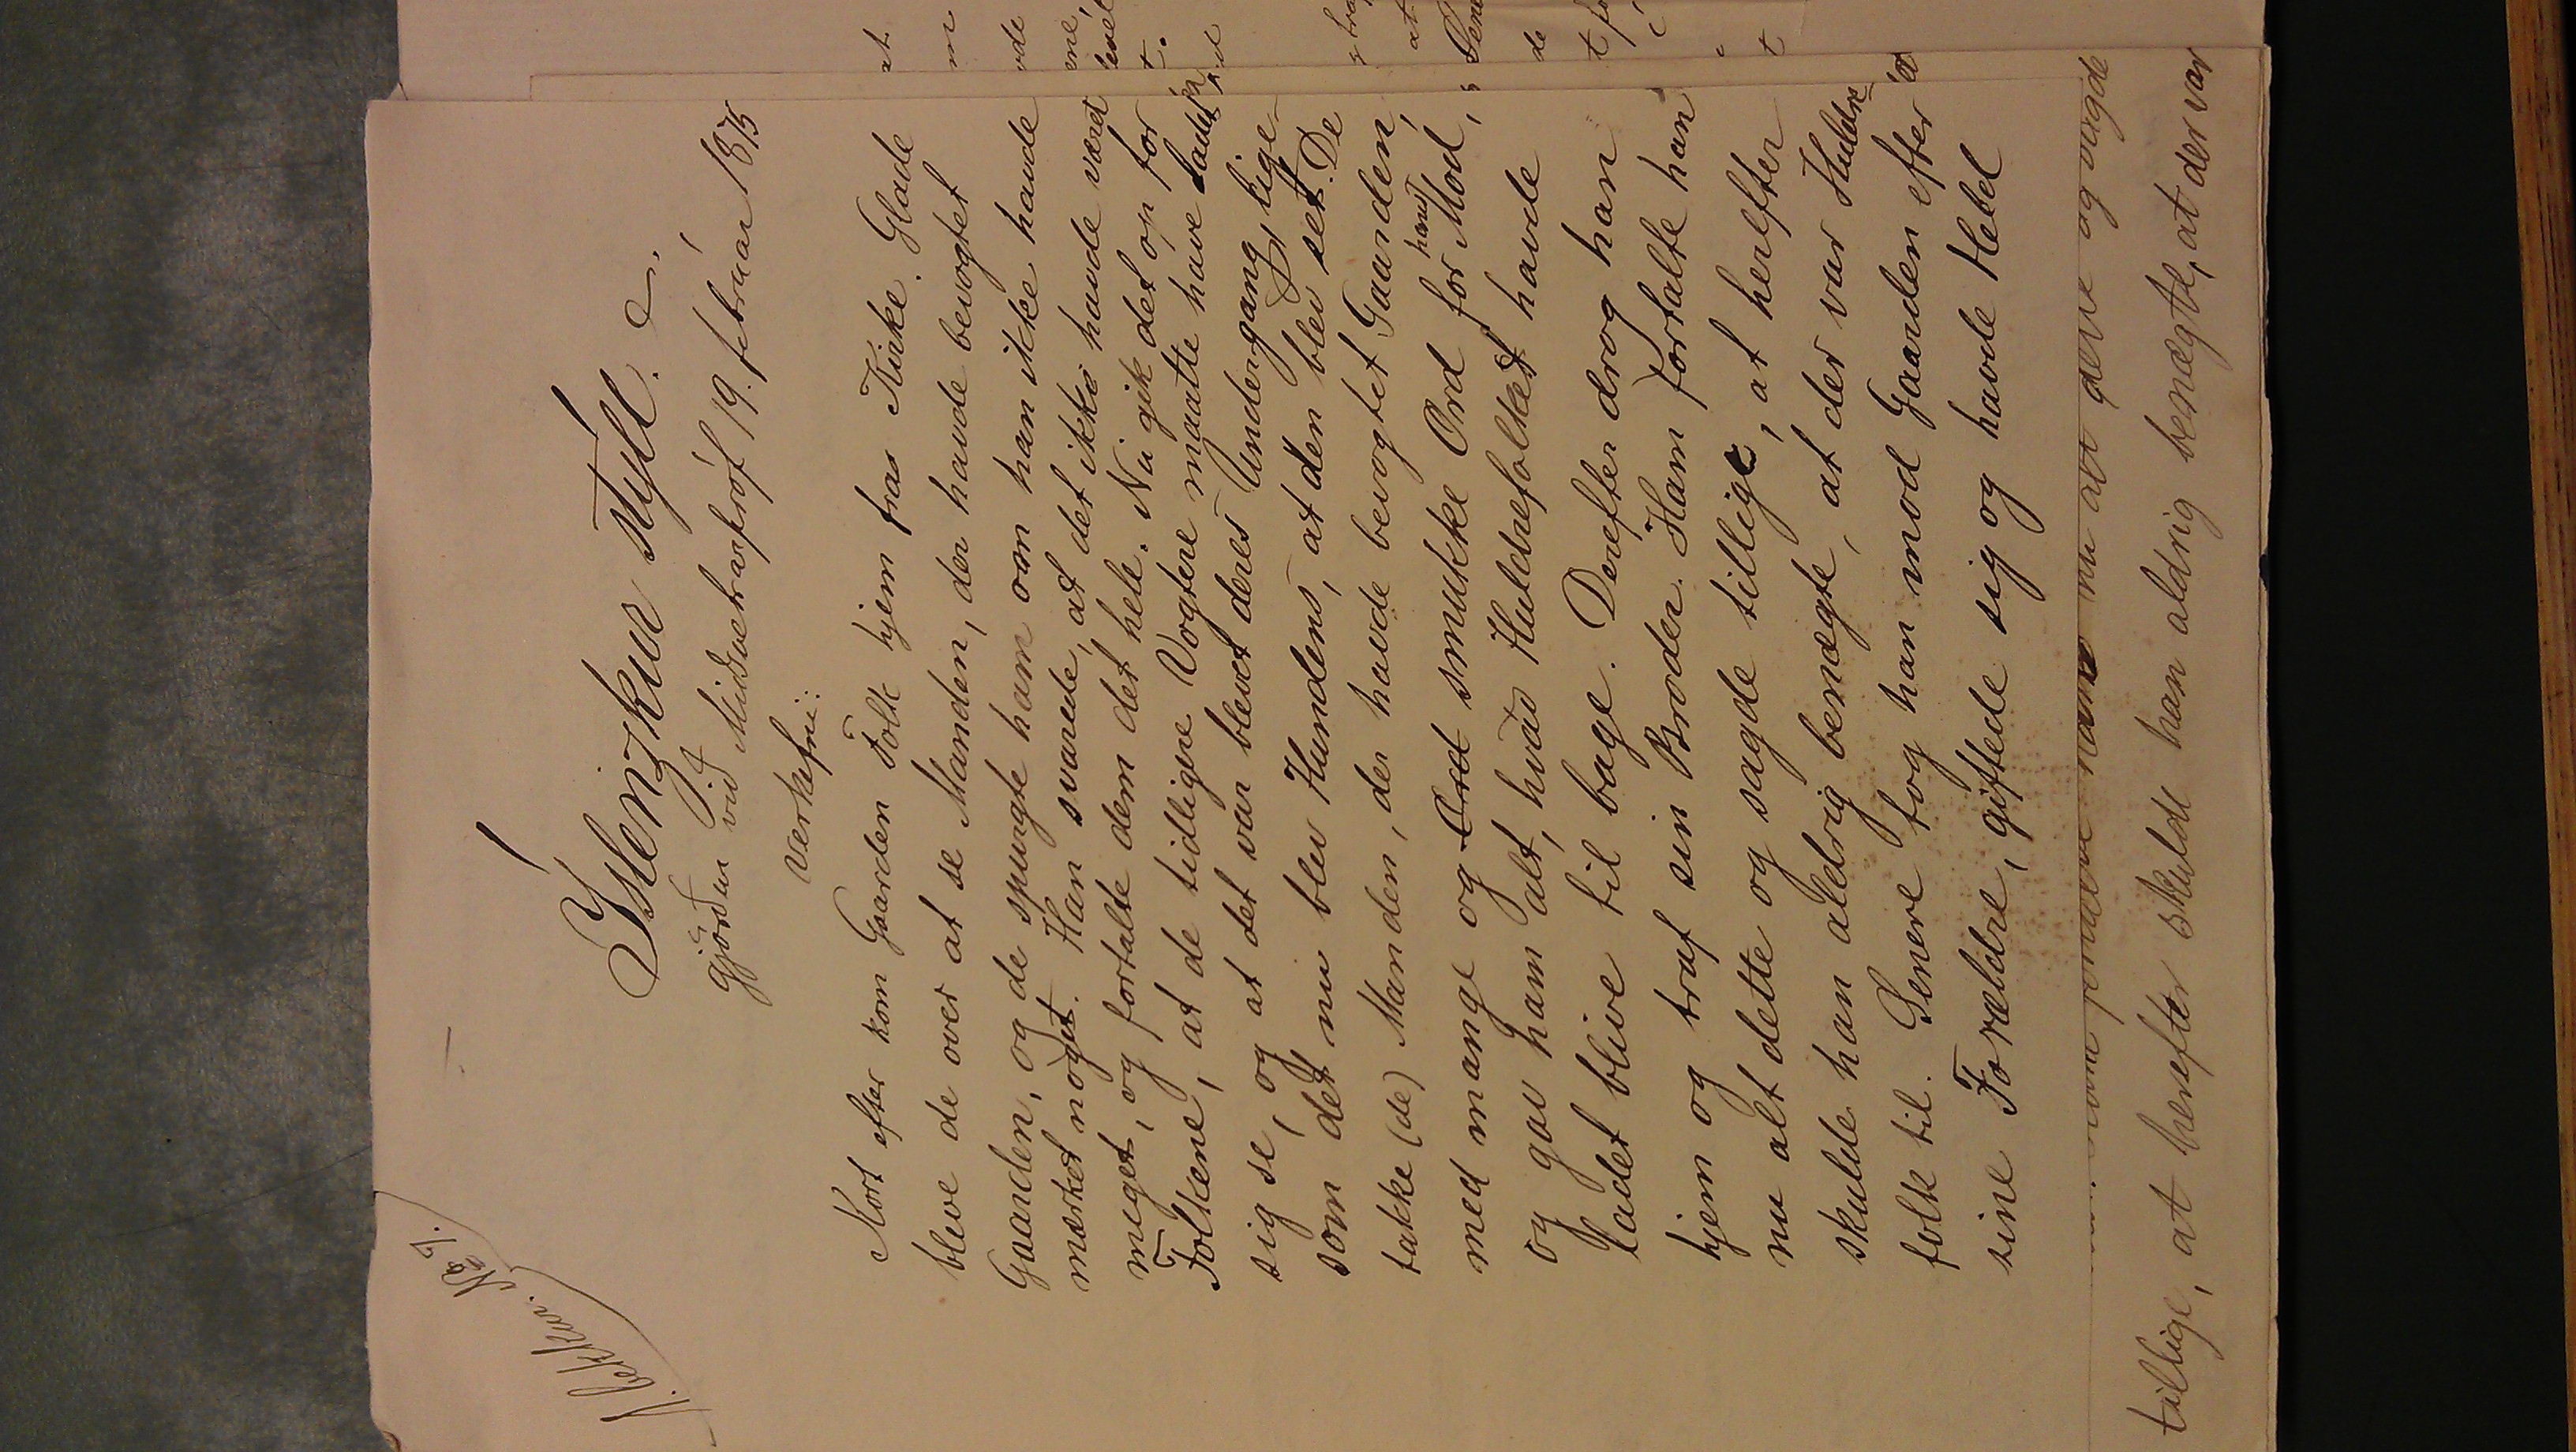 1. bekkur. No 7.
Íslenzkur stýll.
gjörður við Miðsvetrarpróf 19. februar 1875
Verkefni:
Kort efter kom Gaarden Folk hjem fra Kirke. Glade
bleve de over at se Manden, der havde bevogtet
Gaarden, og de spurgte ham om han ikke havde
mærket noget. Han svarede, at det ikke havde været
meget, og fortalte dem det hele. Nu gik det op for
Folkene, at de tidligere Vogtere maatte have ladet
sig se, og at det var blevet deres Undergang, lige
som det nu blev Hundens, at den blev set. De
takke (de) Manden, der havde bevogtet Gaarden,
med mange og Ord smukke Ord for hans Mod,
og gav ham alt, hvad Huldrefolket havde
ladet blive til bage. Derefter drog han
hjem og traf sin Broder. Ham fortalte han
nu alt dette og sagde tillige, at herefter
skulde han aldrig benægte, at der var Huldre
folk til. Senere tog han mod Gaarden efter
sine Forældre, giftede sig og havde Held
tillige, at herefter skulde han aldrig benægte, at der var